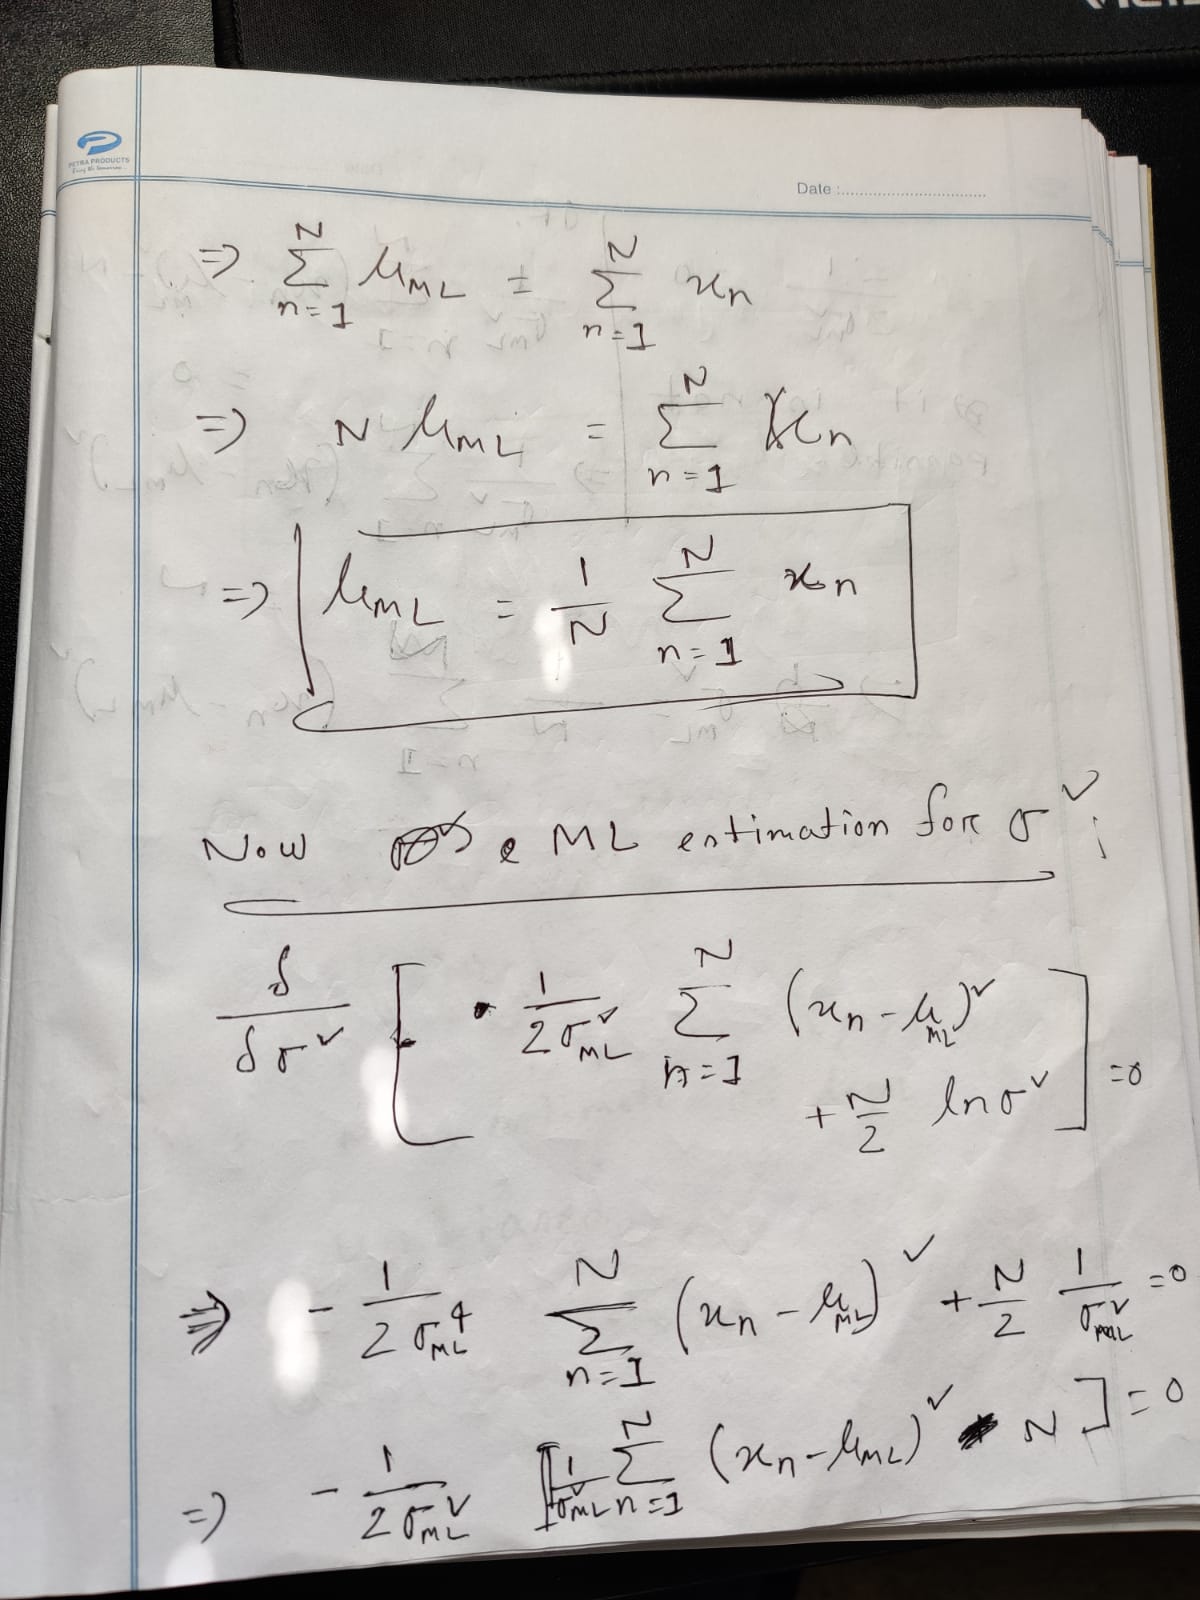 PETRA PRODUCTS
Date :
=> Σ_{n=1}^{N} μ_{ML} = Σ_{n=1}^{N} x_n
=> N μ_{ML} = Σ_{n=1}^{N} x_n
=> μ_{ML} = 1/N Σ_{n=1}^{N} x_n
Now ML estimation for σ²;
δ/δσ² [ 1/(2σ²_{ML}) Σ_{n=1}^{N} (x_n - μ_{ML})²
+ N/2 ln σ² ] = 0
=> - 1/(2σ_{ML}^4) Σ_{n=1}^{N} (x_n - μ_{ML})² + N/2 1/σ²_{ML} = 0
=> - 1/(2σ²_{ML}) [ 1/σ²_{ML} Σ_{n=1}^{N} (x_n - μ_{ML})² N ] = 0